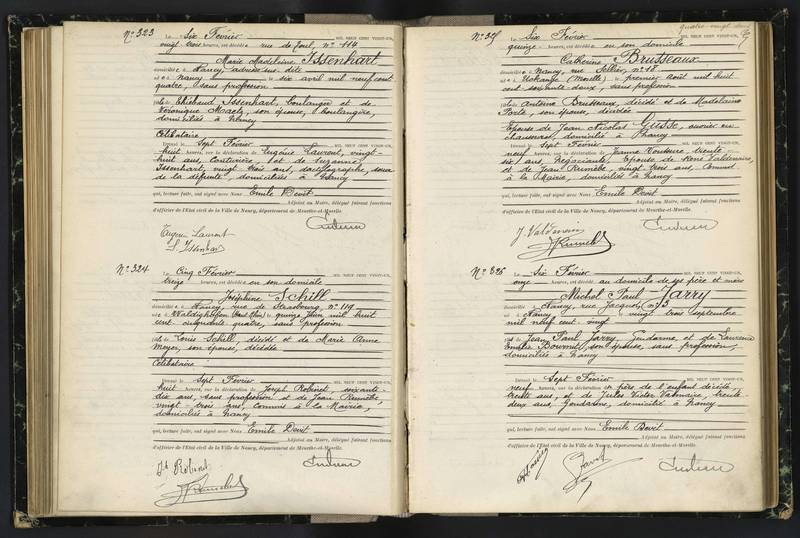 N° 323
Le Six Février MIL NEUF CENT VINGT-UN,
vingt trois heures, est décédée rue de Toul, n° 114
Marie Madeleine Issenhart
domiciliée à Nancy adresse sus-dite
née à Nancy le six avril mil neuf cent
quatre, sans profession
fille de Thiébaud Issenhart, boulanger et de
Véronique son épouse, boulangère,
domiciliés à Nancy
Célibataire
Dressé le Sept Février MIL NEUF CENT VINGT-UN,
huit heures, sur la déclaration de Eugénie Laurent, vingt-
huit ans, couturière, et de Suzanne
Issenhart, vingt trois ans, dactylographe, sœur
de la défunte, domiciliées à Nancy
qui, lecture faite, ont signé avec Nous Emile Devit
Adjoint au Maire, délégué faisant fonctions
d'officier de l'Etat civil de la Ville de Nancy, département de Meurthe-et-Moselle.
Laurent
S. Issenhart
N° 324
Le Cinq Février MIL NEUF CENT VINGT-UN,
treize heures, est décédée en son domicile
Joséphine Schill
domiciliée à Nancy rue de Strasbourg, n° 119
née à Waldighoffen (Haut Rhin) le quinze juin mil huit
cent cinquante quatre, sans profession
fille de Louis Schill, décédé et de Marie Anne
Meyer, son épouse, décédée
Célibataire
Dressé le Sept Février MIL NEUF CENT VINGT-UN,
huit heures, sur la déclaration de Joseph Robinet, soixante
dix ans, sans profession et de Jean Rumelié,
vingt-trois ans, commis à la Mairie,
domiciliés à Nancy
qui, lecture faite, ont signé avec Nous Emile Devit
Adjoint au Maire, délégué faisant fonctions
d'officier de l'Etat civil de la Ville de Nancy, département de Meurthe-et-Moselle.
Robinet
quatre-vingt deux
N° 325
Le Six Février MIL NEUF CENT VINGT-UN,
quinze heures, est décédée en son domicile
Catherine Brusseaux
domiciliée à Nancy, rue n° 18
née à Uckange (Moselle) le premier Août mil huit
cent soixante deux, sans profession
fille de Antoine Brusseaux, décédé et de Madelaine
Porte, son épouse, décédée
Epouse de Jean Nicolas Gusse, ouvrier en
chaussures, domicilié à Nancy
Dressé le Sept Février MIL NEUF CENT VINGT-UN,
neuf heures, sur la déclaration de Jeanne trente
six ans, négociante, Epouse de
et de Jean Rumelié, vingt trois ans, commis
à la Mairie, domiciliés à Nancy
qui, lecture faite, ont signé avec Nous Emile Devit
Adjoint au Maire, délégué faisant fonctions
d'officier de l'Etat civil de la Ville de Nancy, département de Meurthe-et-Moselle.
N° 326
Le Six Février MIL NEUF CENT VINGT-UN,
onze heures, est décédé au domicile de ses père et mère
Michel Paul Jarry
domicilié à Nancy, rue Jacquot, n° 3
né à Nancy le vingt trois septembre
mil neuf cent vingt
fils de Jean Paul Jarry, Gendarme, et de Laurence
Emilie son épouse, sans profession,
domiciliés à Nancy
Dressé le Sept Février MIL NEUF CENT VINGT-UN,
neuf heures, sur la déclaration du père de l'enfant décédé,
trente ans, et de Jules Victor trente
deux ans, Gendarme, domicilié à Nancy
qui, lecture faite, ont signé avec Nous Emile Devit
Adjoint au Maire, délégué faisant fonctions
d'officier de l'Etat civil de la Ville de Nancy, département de Meurthe-et-Moselle.